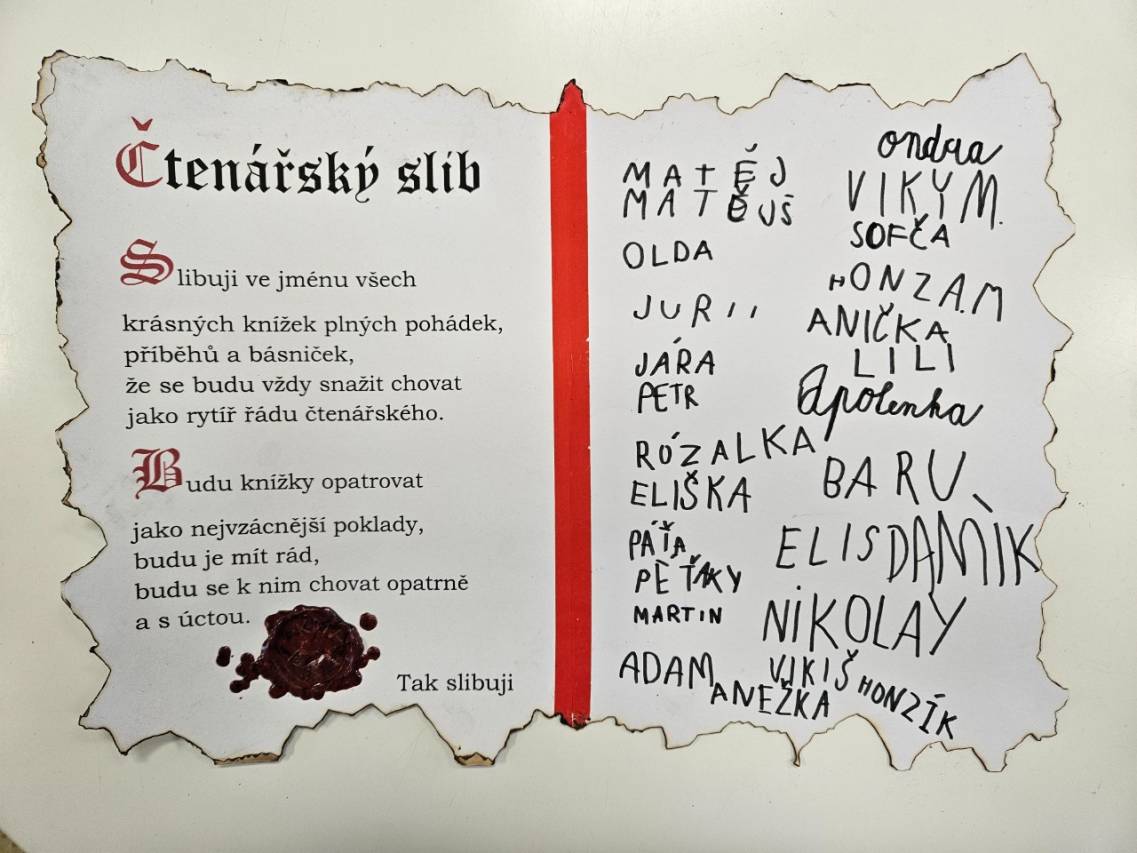 Čtenářský slib
Slibuji ve jménu všech
krásných knížek plných pohádek,
příběhů a básniček,
že se budu vždy snažit chovat
jako rytíř řádu čtenářského.
Budu knížky opatrovat
jako nejvzácnější poklady,
budu je mít rád,
budu se k nim chovat opatrně
a s úctou.
Tak slibuji
MATĚJ
MATĚUŠ
OLDA
JURII
JÁRA
PETR
RÓZALKA
ELIŠKA
PÁŤA
PEŤÁKY
MARTIN
ADAM
ANEŽKA
ondra
VIKY M.
SOFČA
HONZA.M
ANIČKA
LILI
Apolenka
BARU
ELIS DAMÌK
NiKOLAY
VIKIŠ
HONZÍK